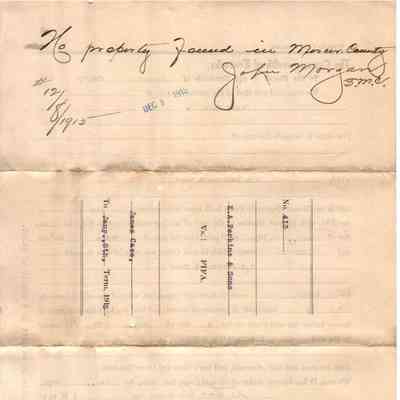 No property found in Mercer County
John Morgan
S.M.C.
12/
8/1915
DEC 8 1915
No. 415
E.A.Perkins & Sons
Vs: FIFA.
James Case,
To Janry.,8th, Term,